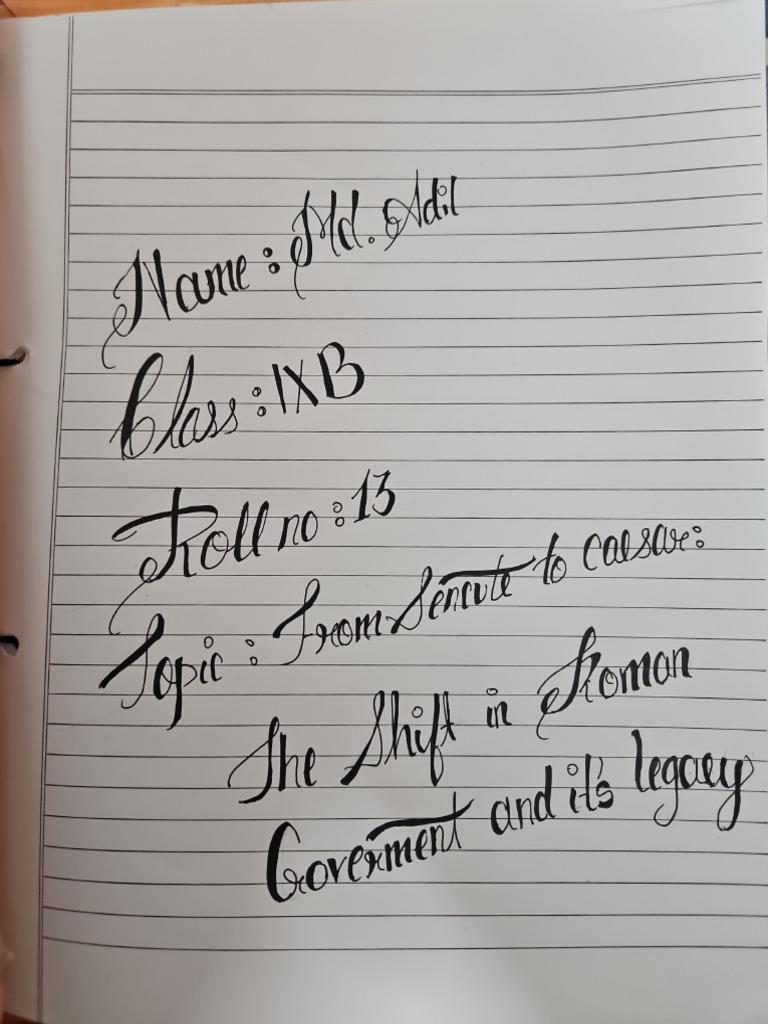 Name: Md. Adil
Class: IXB
Roll no: 13
Topic: From Senate to caesar:
The Shift in Roman
Goverment and it's legacy